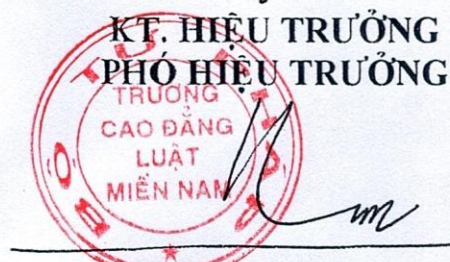 KT. HIỆU TRƯỞNG
PHÓ HIỆU TRƯỞNG
BỘ TƯ PHÁP
TRƯỜNG
CAO ĐẲNG
LUẬT
MIỀN NAM